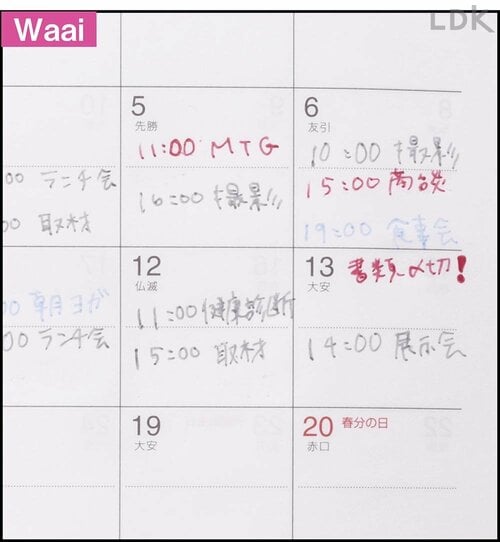 Waai
LDK
5
先勝
11:00 MTG
16:00 撮影
6
友引
10:00 撮影
15:00 商談
19:00 食事会
00 ランチ会
00 取材
12
仏滅
11:00 健康診断
15:00 取材
13
大安
書類〆切!
14:00 展示会
00 朝ヨガ
00 ランチ会
19
大安
20
春分の日
赤口